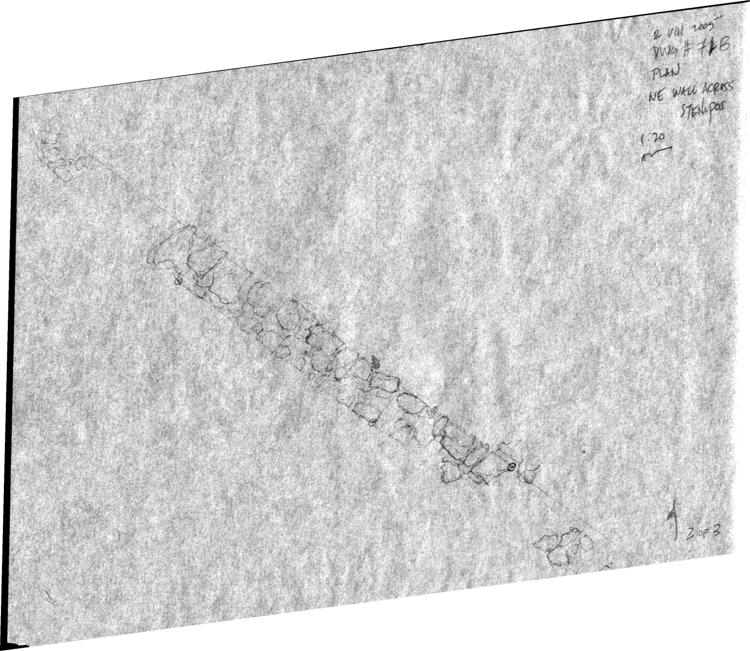 2 VIII 2005
DWG #
PLAN
NE WALL ACROSS
STENOPOS
1:20
2 OF 3